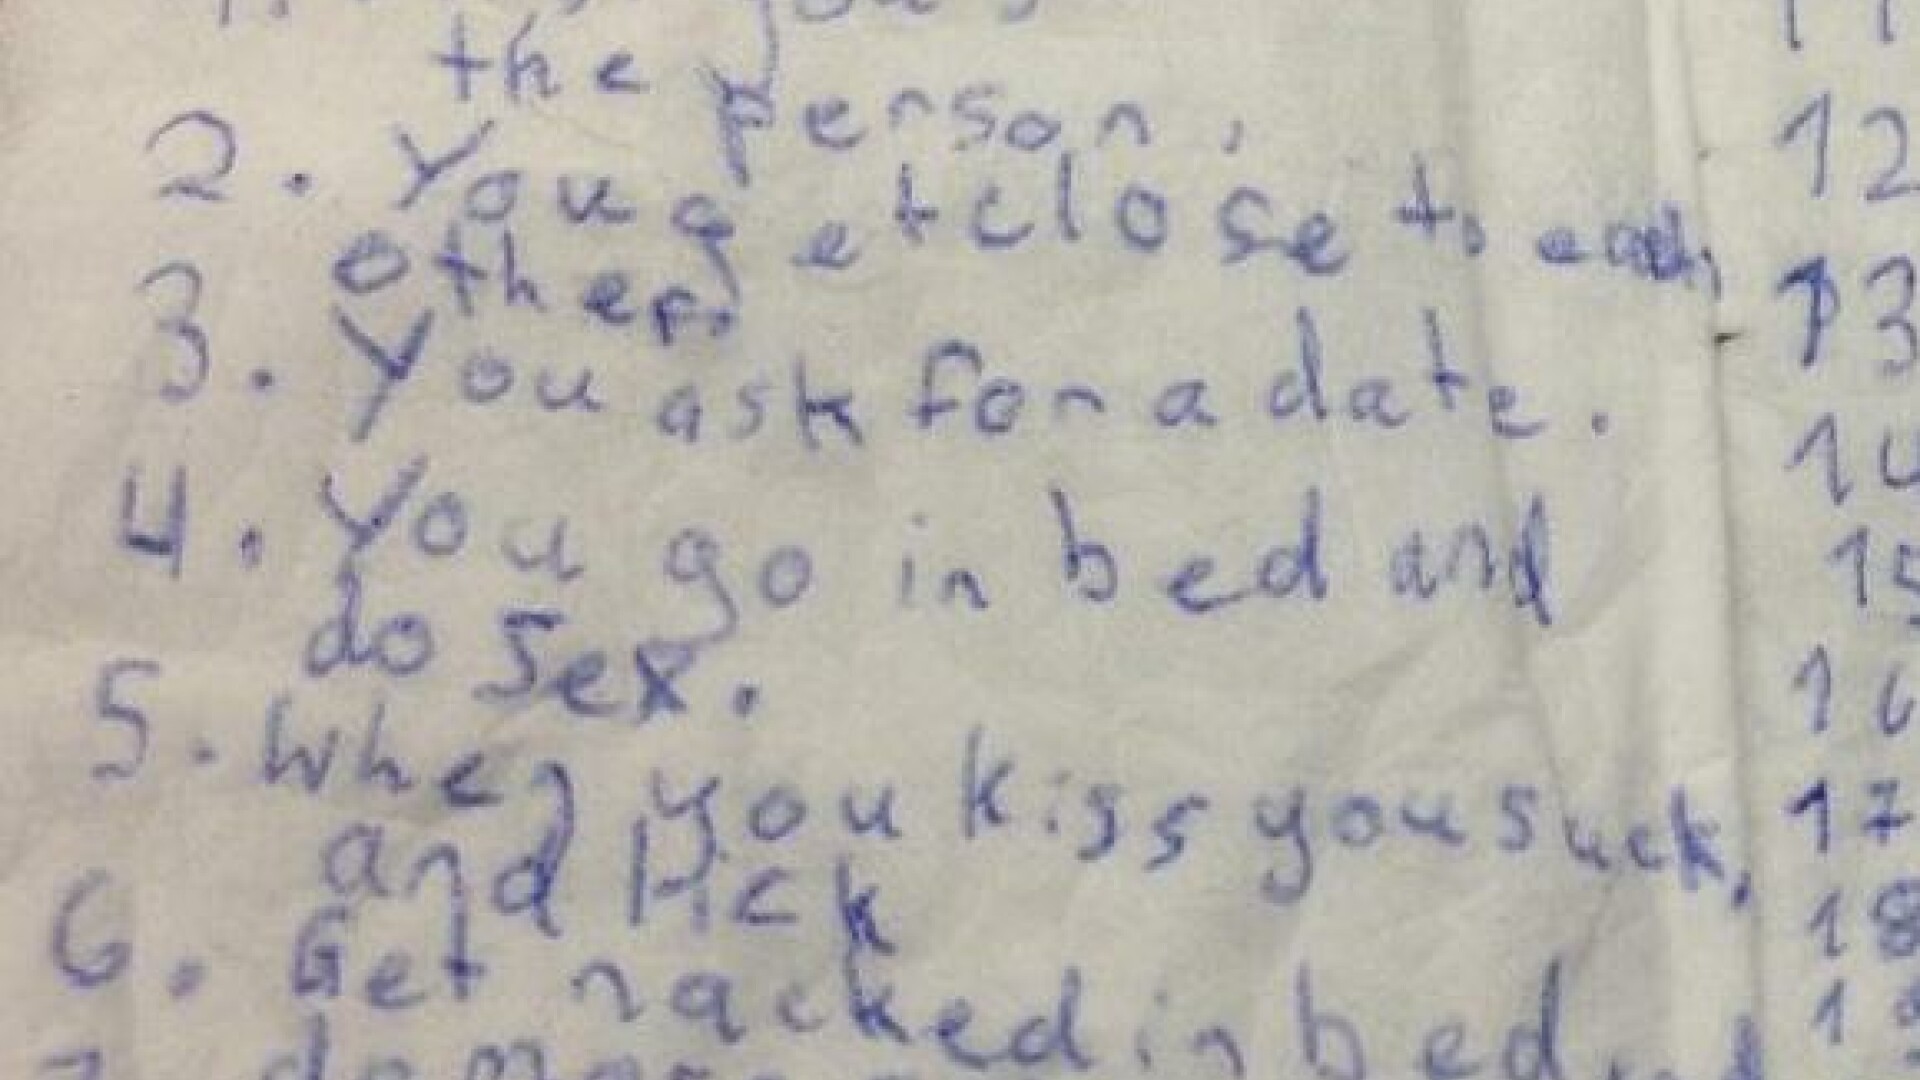 the person.
2. You get close to each
other.
3. You ask for a date.
4. You go in bed and
do sex.
5. When you kiss you suck
and lick
6. Get nacked in bed
12
13
14
15
16
17
18